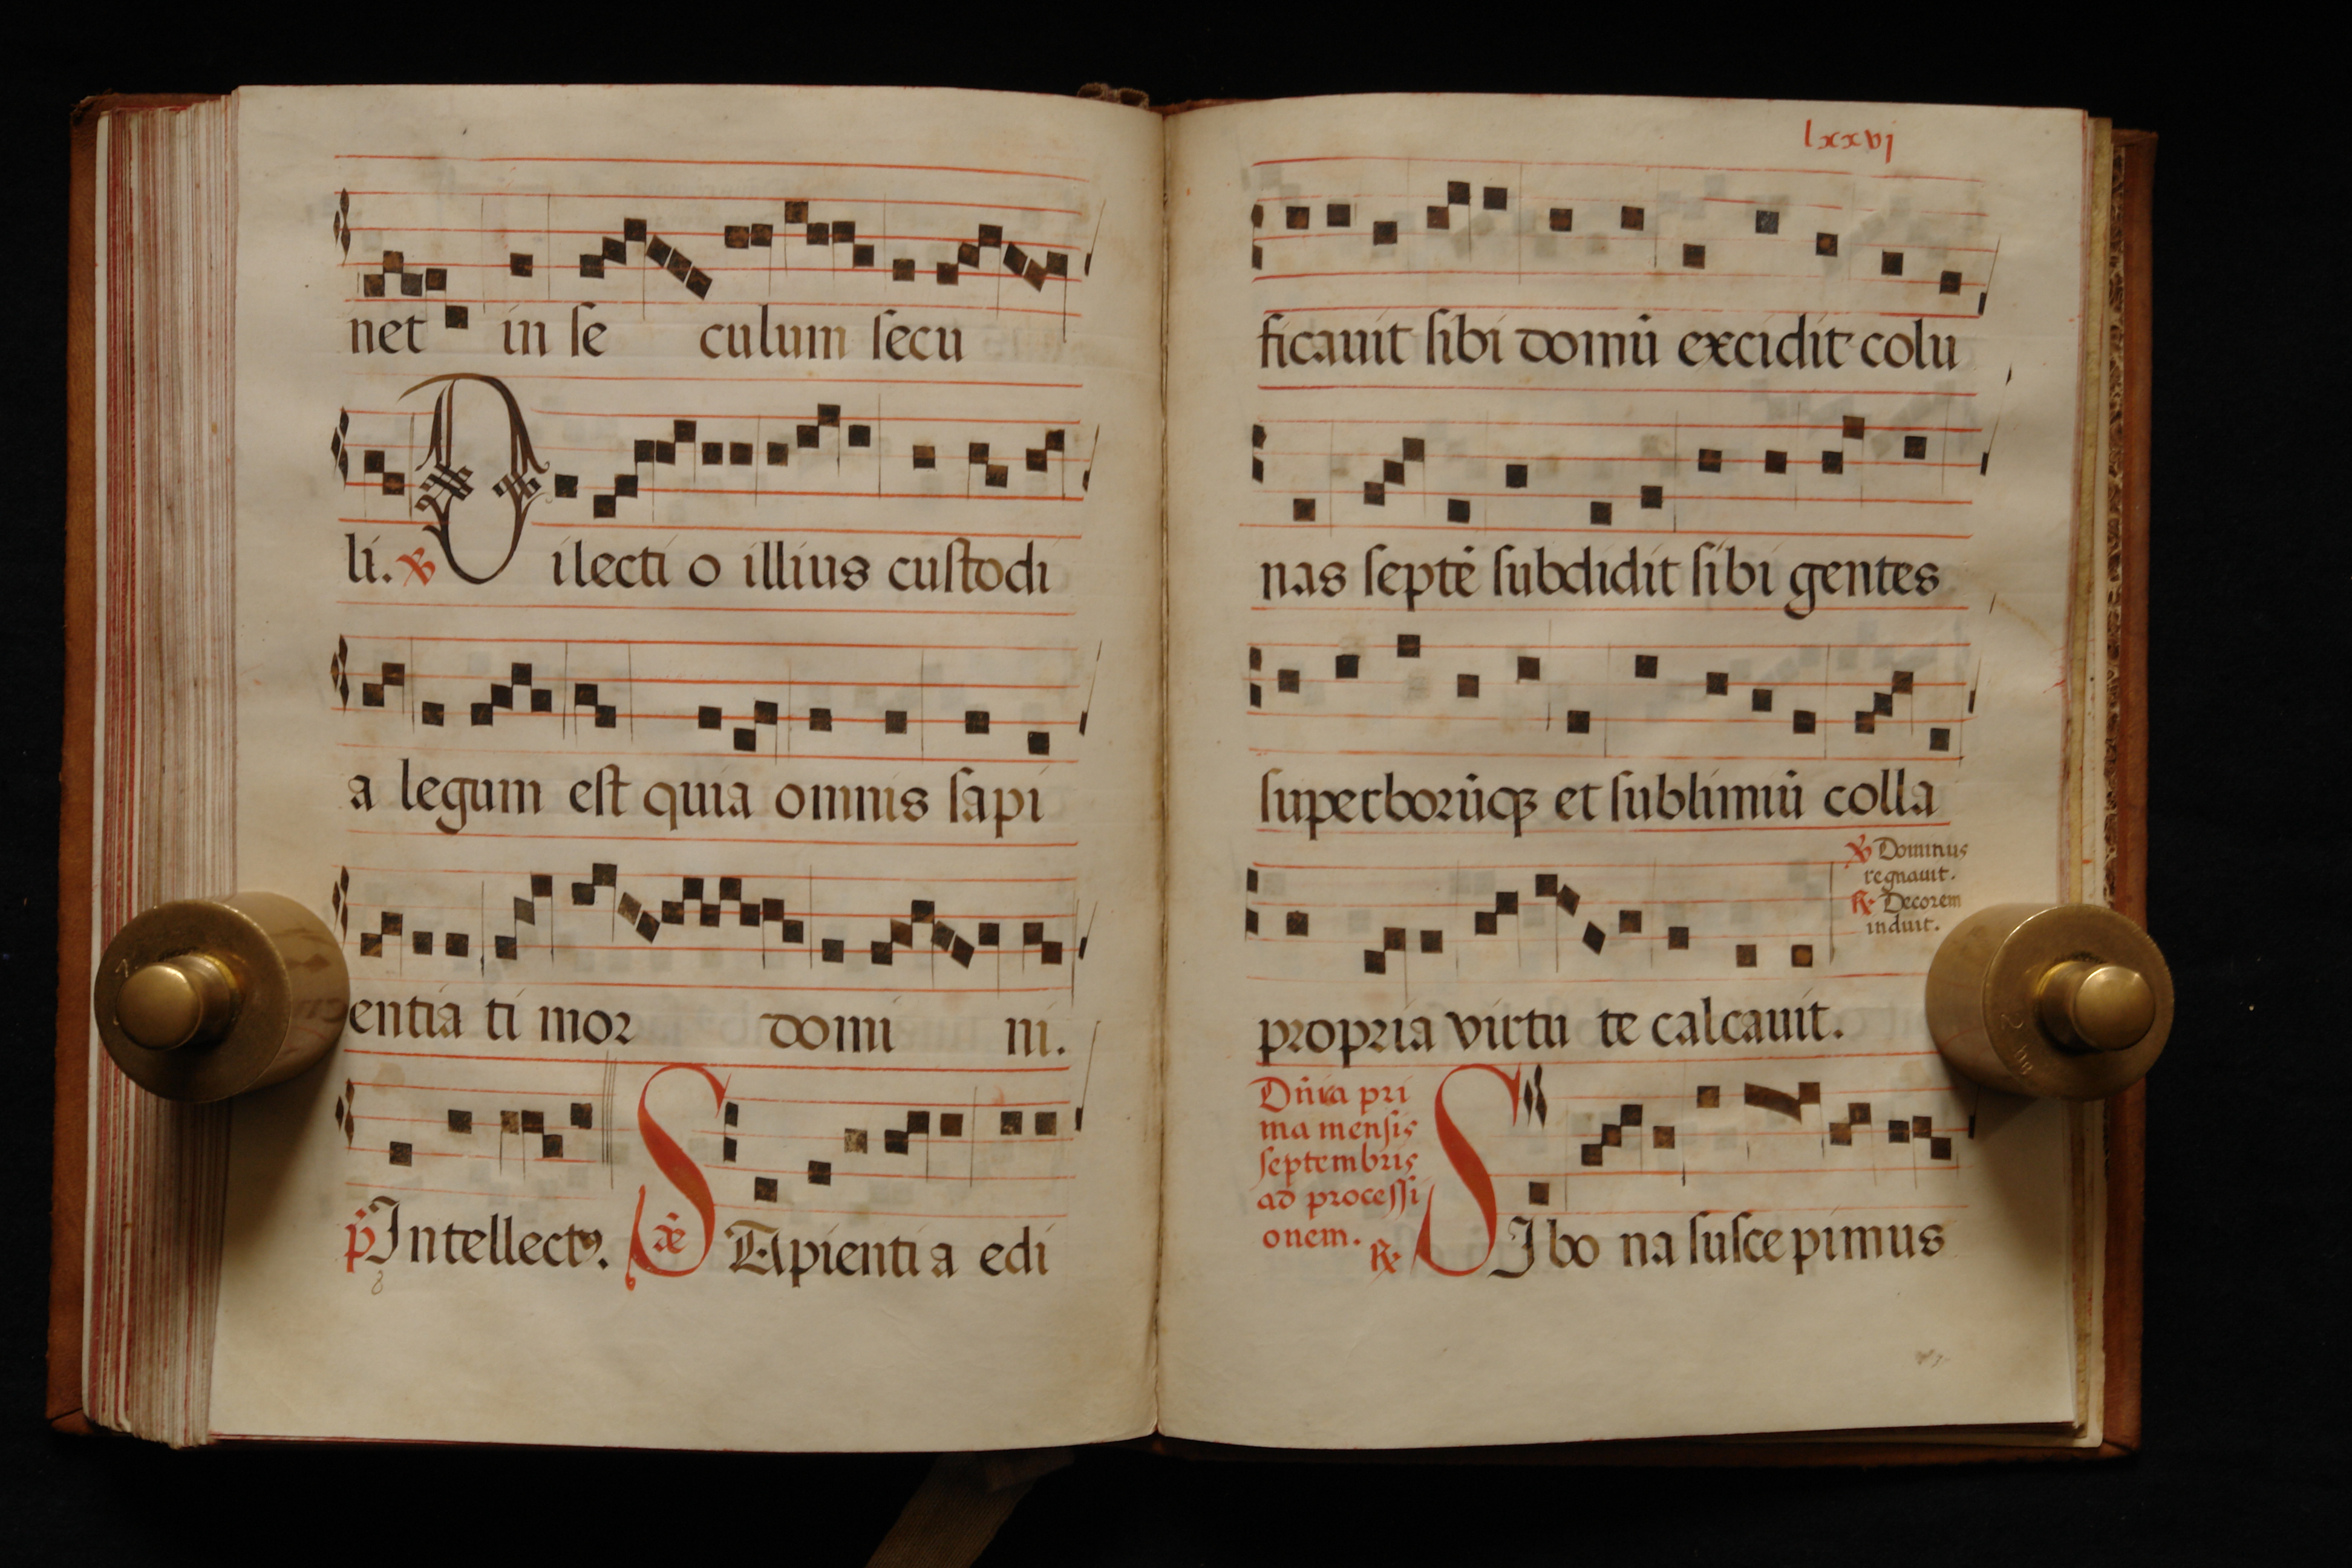 net in se culum secu
li. ℣ Dilecti o illius custodi
a legum est quia omnis sapi
entia ti mor domi ni.
Intellectꝰ. SApienti a edi
lxxvj
ficauit sibi domū excidit colu
nas septē subdidit sibi gentes
superborūqꝫ et sublimiū colla
℣ Dominus
regnauit.
℟ Decorem
induit.
propria virtu te calcauit.
Dn̄ica pri
ma mensis
septembris
ad processi
onem. ℟
SI bo na suscepimus